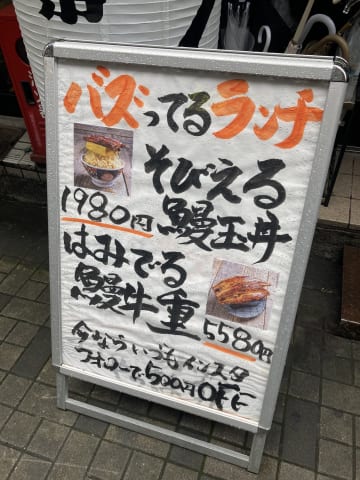 バズってるランチ
そびえる
鰻玉丼
1980円
はみでる
鰻牛重
5580円
今ならいつもインスタ
フォローで500円OFF